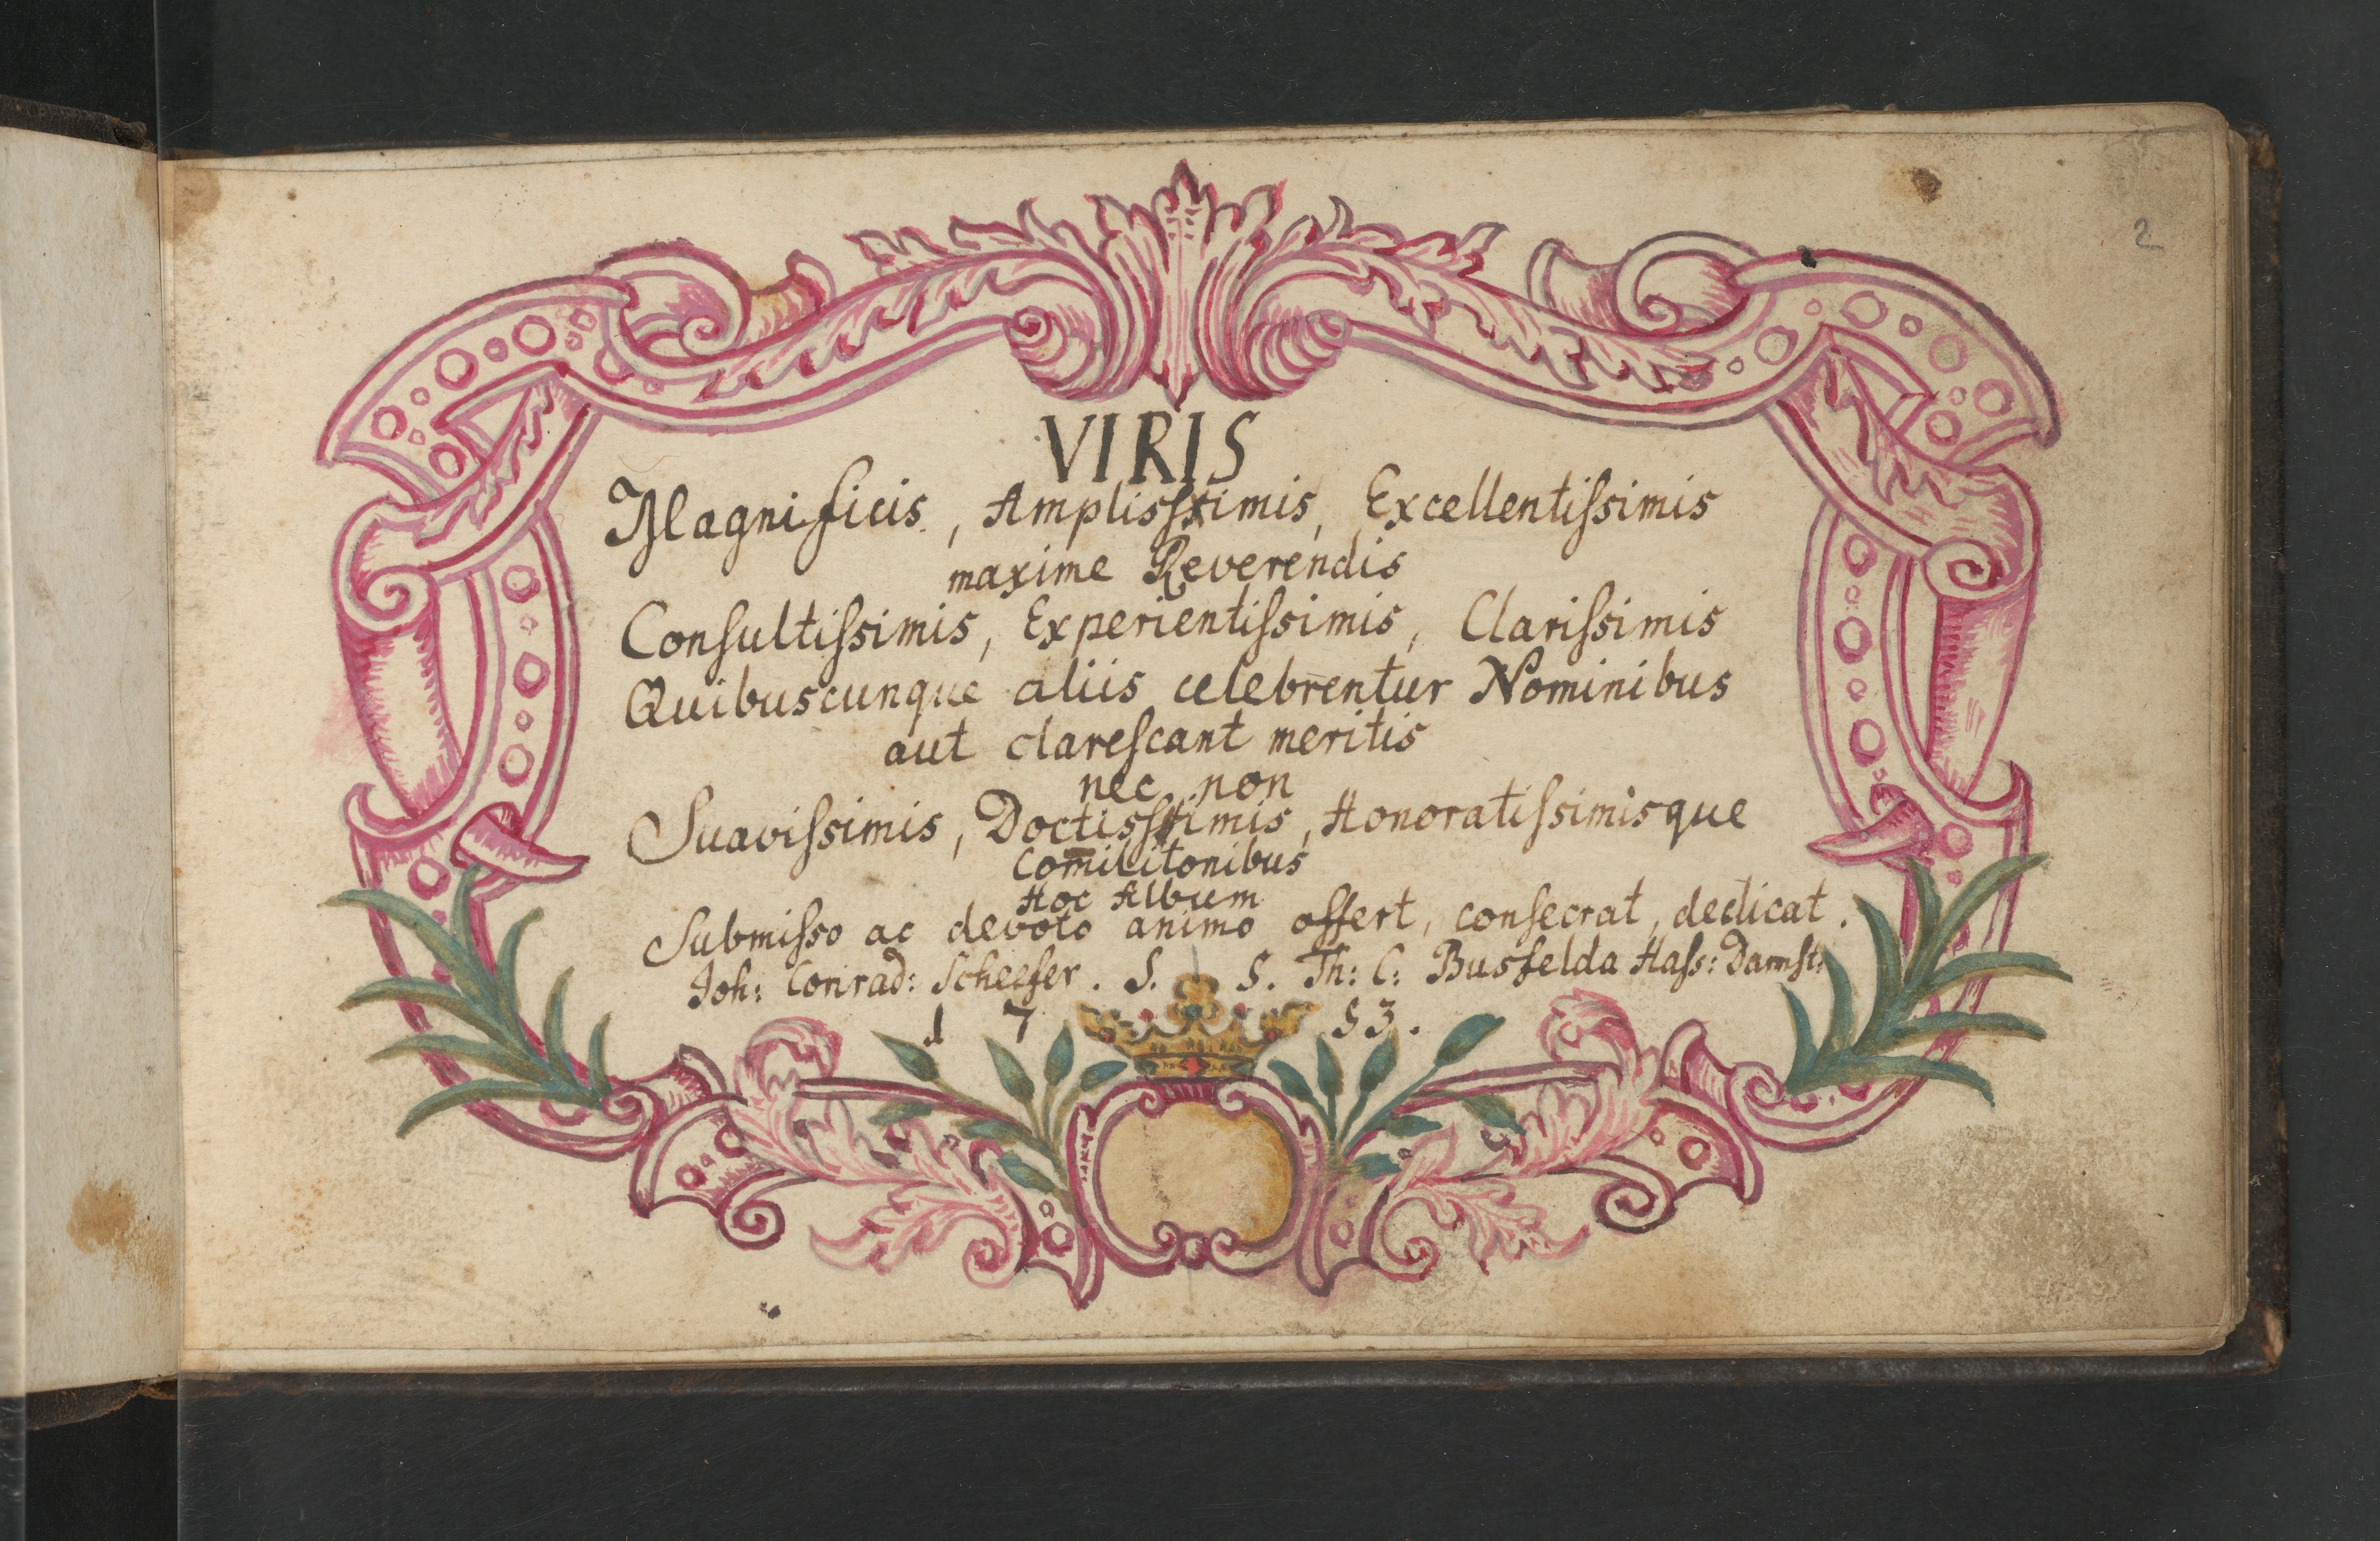 2
VIRIS
Magnificis, Amplisſimis, Excellentiſsimis
maxime Reverendis
Conſultiſsimis, Experientiſsimis, Clariſsimis
Quibuscunque aliis celebrentur Nominibus
aut clareſcant meritis
nec non
Suaviſsimis, Doctisſimis, Honoratiſsimisque
Com̅ilitonibus
Hoc Album
Submiſso ac devoto animo offert, conſecrat, dedicat.
Joh: Conrad: Scheffer. S. S. Th: C: Busfelda Haſs: Darmſt:
1753.